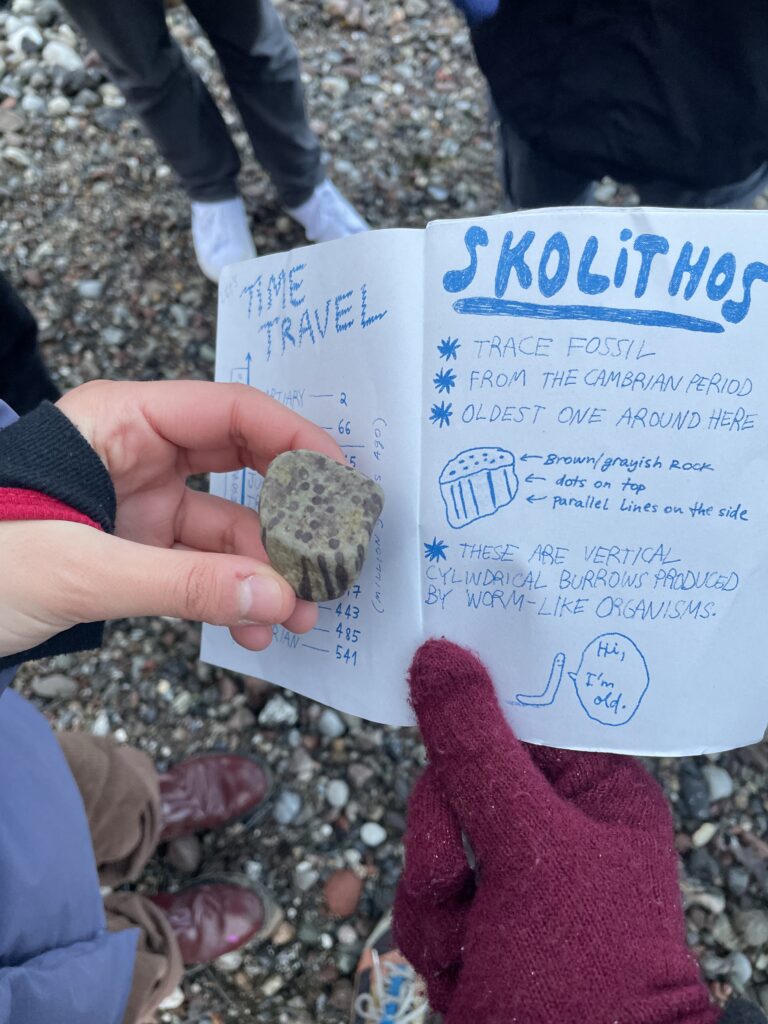 TIME
TRAVEL
2
66
443
485
541
(MILLIONS AGO)
SKOLITHOS
TRACE FOSSIL
FROM THE CAMBRIAN PERIOD
OLDEST ONE AROUND HERE
Brown/grayish Rock
dots on top
parallel lines on the side
THESE ARE VERTICAL
CYLINDRICAL BURROWS PRODUCED
BY WORM-LIKE ORGANISMS.
Hi,
I'm
old.